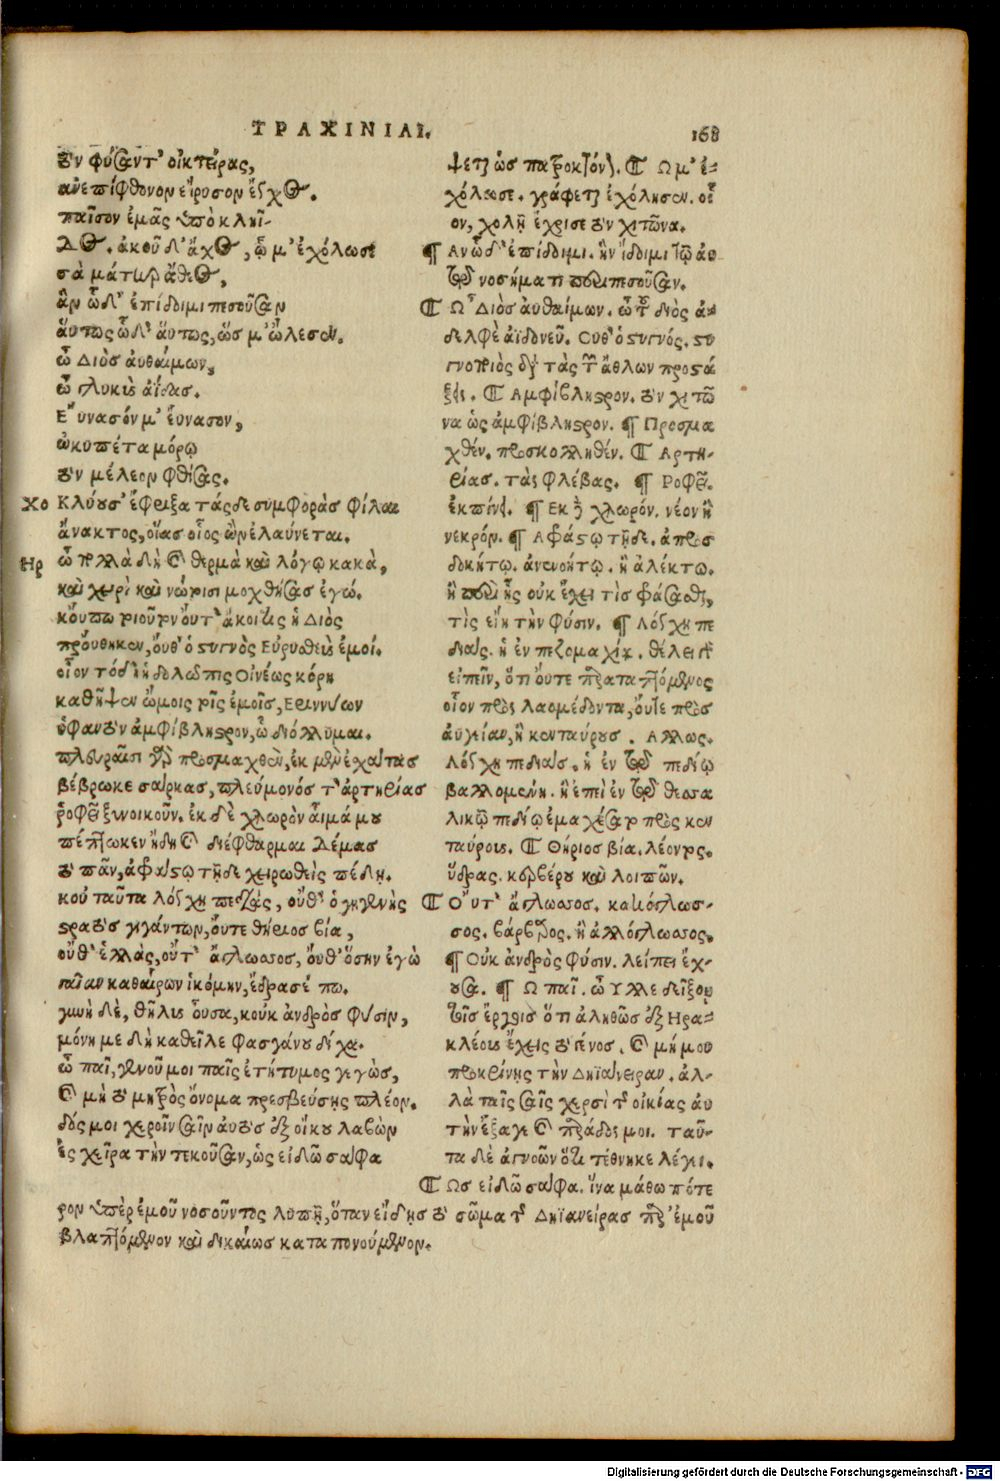 ΤΡΑΧΙΝΙΑΙ. 168
τὸν φύσαντ' οἰκτείρας,
ἀνεπίφθονον εἴρυσον ἔγχος.
παῖσον ἐμᾶς ὑπὸ κληῖ-
δος. ἀκοῦ δ' ἄχος, ᾧ μ' ἐχόλωσε
σὰ μάτηρ ἄθεος,
ἂν ὧδ' ἐπίδοιμι πεσοῦσαν
αὔτως ὧδ' αὔτως, ὥς μ' ὤλεσεν.
ὦ Διὸς αὐθαίμων,
ὦ γλυκὺς ἀΐδας.
Εὔνασόν μ' εὔνασον,
ὠκυπέτα μόρῳ
τὸν μέλεον φθίσας.
Χο Κλύουσ' ἔφριξα τάσδε συμφορὰς φίλαι
ἄνακτος, οἵας οἷος ὢν ἐλαύνεται.
Ηρ ὦ πολλὰ δὴ καὶ θερμὰ καὶ λόγῳ κακὰ,
καὶ χειρὶ καὶ νώτοισι μοχθήσας ἐγώ.
κοὔπω τοιοῦτον οὔτ' ἄκοιτις ἡ Διὸς
προὔθηκεν, οὔθ' ὁ στυγνὸς Εὐρυσθεὺς ἐμοί.
οἷον τόδ' ἡ δολῶπις Οἰνέως κόρη
καθῆψεν ὤμοις τοῖς ἐμοῖς, Εριννύων
ὑφαντὸν ἀμφίβληστρον, ᾧ διόλλυμαι.
πλευραῖσι γὰρ προσμαχθὲν, ἐκ μὲν ἐσχάτας
βέβρωκε σάρκας, πλεύμονός τ' ἀρτηρίας
ῥοφεῖ ξυνοικοῦν. ἐκ δὲ χλωρὸν αἷμά μου
πέπωκεν ἤδη καὶ διέφθαρμαι δέμας
τὸ πᾶν, ἀφράστῳ τῇδε χειρωθεὶς πέδῃ.
κοὐ ταῦτα λόγχη πεδιὰς, οὔθ' ὁ γηγενὴς
στρατὸς γιγάντων, οὔτε θήριος βία,
οὔθ' ἑλλὰς, οὔτ' ἄγλωσσος, οὔθ' ὅσην ἐγὼ
γαῖαν καθαίρων ἱκόμην, ἔδρασέ πω.
γυνὴ δὲ, θῆλυς οὖσα, κοὐκ ἀνδρὸς φύσιν,
μόνη με δὴ καθεῖλε φασγάνου δίχα.
ὦ παῖ, γενοῦ μοι παῖς ἐτήτυμος γεγὼς,
καὶ μὴ τὸ μητρὸς ὄνομα πρεσβεύσῃς πλέον.
δός μοι χεροῖν σαῖν αὐτὸς ἐξ οἴκου λαβὼν
ἐς χεῖρα τὴν τεκοῦσαν, ὡς εἰδῶ σάφα
ψεται ὡς παροκτόν). ¶ Ω μ' ἐ-
χόλωσε. γράφεται ἐχόλησεν. οἷ
ον, χολῇ ἔχρισε τὸν χιτῶνα.
¶ Αν ὧδ' ἐπίδοιμι. ἣν ἴδοιμι τῷ αὐ
τῷ νοσήματι περιπεσοῦσαν.
¶ Ω Διὸς αὐθαίμων. ὦ τοῦ διὸς ἀ-
δελφὲ ἀϊδονεῦ. Ουθ' ὁ στυγνός. στυ
γνοποιὸς διὰ τὰς τῶν ἄθλων προστά
ξεις. ¶ Αμφίβληστρον. τὸν χιτῶ
να ὡς ἀμφίβληστρον. ¶ Προσμα
χθέν. προσκολληθέν. ¶ Αρτη-
ρίας. τὰς φλέβας. ¶ Ροφεῖ.
ἐκπίνει. ¶ Εκ δὲ χλωρόν. νέον ἢ
νεκρόν. ¶ Αφράστῳ τῇδε. ἀπροσ
δοκήτῳ. ἀνενοήτῳ. ἢ ἀλέκτῳ.
ἢ περὶ ἧς οὐκ ἔχει τὶς φράσασθαι,
τὶς εἴη τὴν φύσιν. ¶ Λόγχη πε
διάς. ἡ ἐν πεζομαχίᾳ. θέλει γὰρ
εἰπεῖν, ὅτι οὔτε παραταττόμενος
οἷον πρὸς λαομέδοντα, οὔτε πρὸς
αὐγείαν, ἢ κενταύρους. Αλλως.
Λόγχη πεδιάς. ἡ ἐν τῷ πεδίῳ
βαλλομένη. ἢ ἐπεὶ ἐν τῷ θεσσα
λικῷ πεδίῳ ἐμαχέσατο πρὸς κεν
ταύρους. ¶ Θήριος βία. λέοντος.
ὕδρας. κερβέρου καὶ λοιπῶν.
¶ Οὔτ' ἄγλωσσος. κακόγλωσ-
σος. βάρβαρος. ἢ ἀλλόγλωσσος.
¶ Οὐκ ἀνδρὸς φύσιν. λείπει ἔχ-
ουσα. ¶ Ω παῖ. ὦ Υλλε δεῖξον
τοῖς ἔργοις ὅτι ἀληθῶς ἐξ Ηρα-
κλέους ἔχεις τὸ γένος. καὶ μή μου
προκρίνῃς τὴν Δηϊάνειραν. ἀλ-
λὰ ταῖς σαῖς χερσὶ τῆς οἰκίας αὐ
τὴν ἔξαγε καὶ παράδος μοι. ταῦ-
τα δὲ ἀγνοῶν ὅτι τέθνηκε λέγει.
¶ Ως εἰδῶ σάφα. ἵνα μάθω πότε
ρον ὑπὲρ ἐμοῦ νοσοῦντος λυπῇ, ὅταν εἴδῃς τὸ σῶμα τῆς Δηϊανείρας παρ' ἐμοῦ
βλαπτόμενον καὶ δικαίως καταπονούμενον.
Digitalisierung gefördert durch die Deutsche Forschungsgemeinschaft - DFG